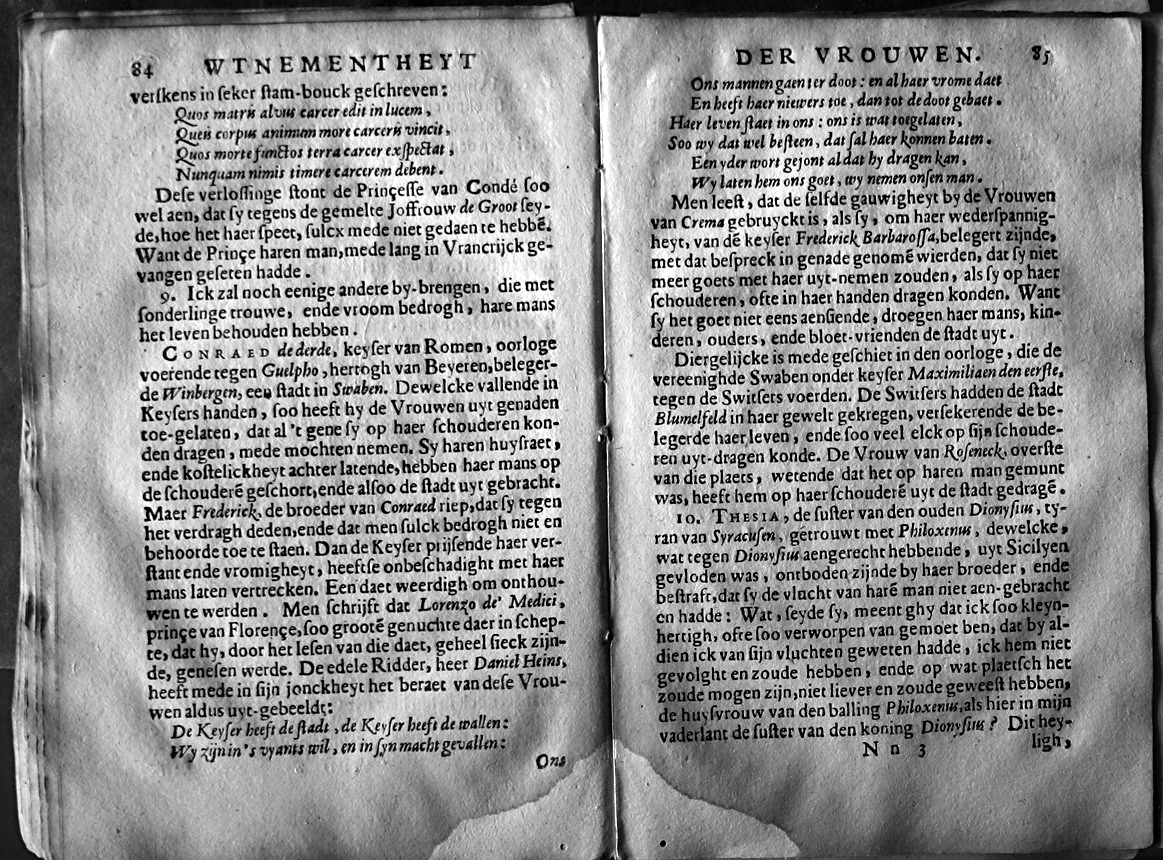 84 WTNEMENTHEYT
verſkens in ſeker ſtam-bouck geſchreven:
Quos matris alvus carcer edit in lucem,
Queis corpus animum more carceris vincit,
Quos morte functos terra carcer exſpectat,
Nunquam nimis timere carcerem debent.
Deſe verloſſinge ſtont de Prinçeſſe van Condé ſoo
wel aen, dat ſy tegens de gemelte Joffrouw de Groot ſey-
de, hoe het haer ſpeet, ſulcx mede niet gedaen te hebbē.
Want de Prinçe haren man, mede lang in Vrancrijck ge-
vangen geſeten hadde.
9. Ick zal noch eenige andere by-brengen, die met
ſonderlinge trouwe, ende vroom bedrogh, hare mans
het leven behouden hebben.
CONRAED de derde, keyſer van Romen, oorloge
voerende tegen Guelpho, hertogh van Beyeren, beleger-
de Winbergen, een ſtadt in Swaben. Dewelcke vallende in
Keyſers handen, ſoo heeft hy de Vrouwen uyt genaden
toe-gelaten, dat al 't gene ſy op haer ſchouderen kon-
den dragen, mede mochten nemen. Sy haren huyſraet,
ende koſtelickheyt achter latende, hebben haer mans op
de ſchouderē geſchort, ende alſoo de ſtadt uyt gebracht.
Maer Frederick, de broeder van Conraed riep, dat ſy tegen
het verdragh deden, ende dat men ſulck bedrogh niet en
behoorde toe te ſtaen. Dan de Keyſer prijſende haer ver-
ſtant ende vromigheyt, heeftſe onbeſchadight met haer
mans laten vertrecken. Een daet weerdigh om onthou-
wen te werden. Men ſchrijft dat Lorenzo de' Medici,
prinçe van Florençe, ſoo grootē genuchte daer in ſchep-
te, dat hy, door het leſen van die daet, geheel ſieck zijn-
de, geneſen werde. De edele Ridder, heer Daniel Heins,
heeft mede in ſijn jonckheyt het beraet van deſe Vrou-
wen aldus uyt-gebeeldt:
De Keyſer heeft de ſtadt, de Keyſer heeft de wallen:
Wy zijn in's vyants wil, en in ſyn macht gevallen:
Ons
DER VROUWEN. 85
Ons mannen gaen ter doot: en al haer vrome daet
En heeft haer niewers toe, dan tot de doot gebaet.
Haer leven ſtaet in ons: ons is wat toegelaten,
Soo wy dat wel beſteen, dat ſal haer konnen baten.
Een yder wort gejont al dat hy dragen kan,
Wy laten hem ons goet, wy nemen onſen man.
Men leeſt, dat de ſelfde gauwigheyt by de Vrouwen
van Crema gebruyckt is, als ſy, om haer wederſpannig-
heyt, van dē keyſer Frederick Barbaroſſa, belegert zijnde,
met dat beſpreck in genade genomē wierden, dat ſy niet
meer goets met haer uyt-nemen zouden, als ſy op haer
ſchouderen, ofte in haer handen dragen konden. Want
ſy het goet niet eens aenſiende, droegen haer mans, kin-
deren, ouders, ende bloet-vrienden de ſtadt uyt.
Diergelijcke is mede geſchiet in den oorloge, die de
vereenighde Swaben onder keyſer Maximiliaen den eerſte,
tegen de Switſers voerden. De Switſers hadden de ſtadt
Blumelfeld in haer gewelt gekregen, verſekerende de be-
legerde haer leven, ende ſoo veel elck op ſijn ſchoude-
ren uyt-dragen konde. De Vrouw van Roſeneck, overſte
van die plaets, wetende dat het op haren man gemunt
was, heeft hem op haer ſchouderē uyt de ſtadt gedragē.
10. THESIA, de ſuſter van den ouden Dionyſius, ty-
ran van Syracuſen, getrouwt met Philoxenus, dewelcke,
wat tegen Dionyſius aengerecht hebbende, uyt Sicilyen
gevloden was, ontboden zijnde by haer broeder, ende
beſtraft, dat ſy de vlucht van harē man niet aen-gebracht
en hadde: Wat, ſeyde ſy, meent ghy dat ick ſoo kleyn-
hertigh, ofte ſoo verworpen van gemoet ben, dat by al-
dien ick van ſijn vluchten geweten hadde, ick hem niet
gevolght en zoude hebben, ende op wat plaetſch het
zoude mogen zijn, niet liever en zoude geweeſt hebben,
de huyſvrouw van den balling Philoxenus, als hier in mijn
vaderlant de ſuſter van den koning Dionyſius? Dit hey-
N n 3 ligh,